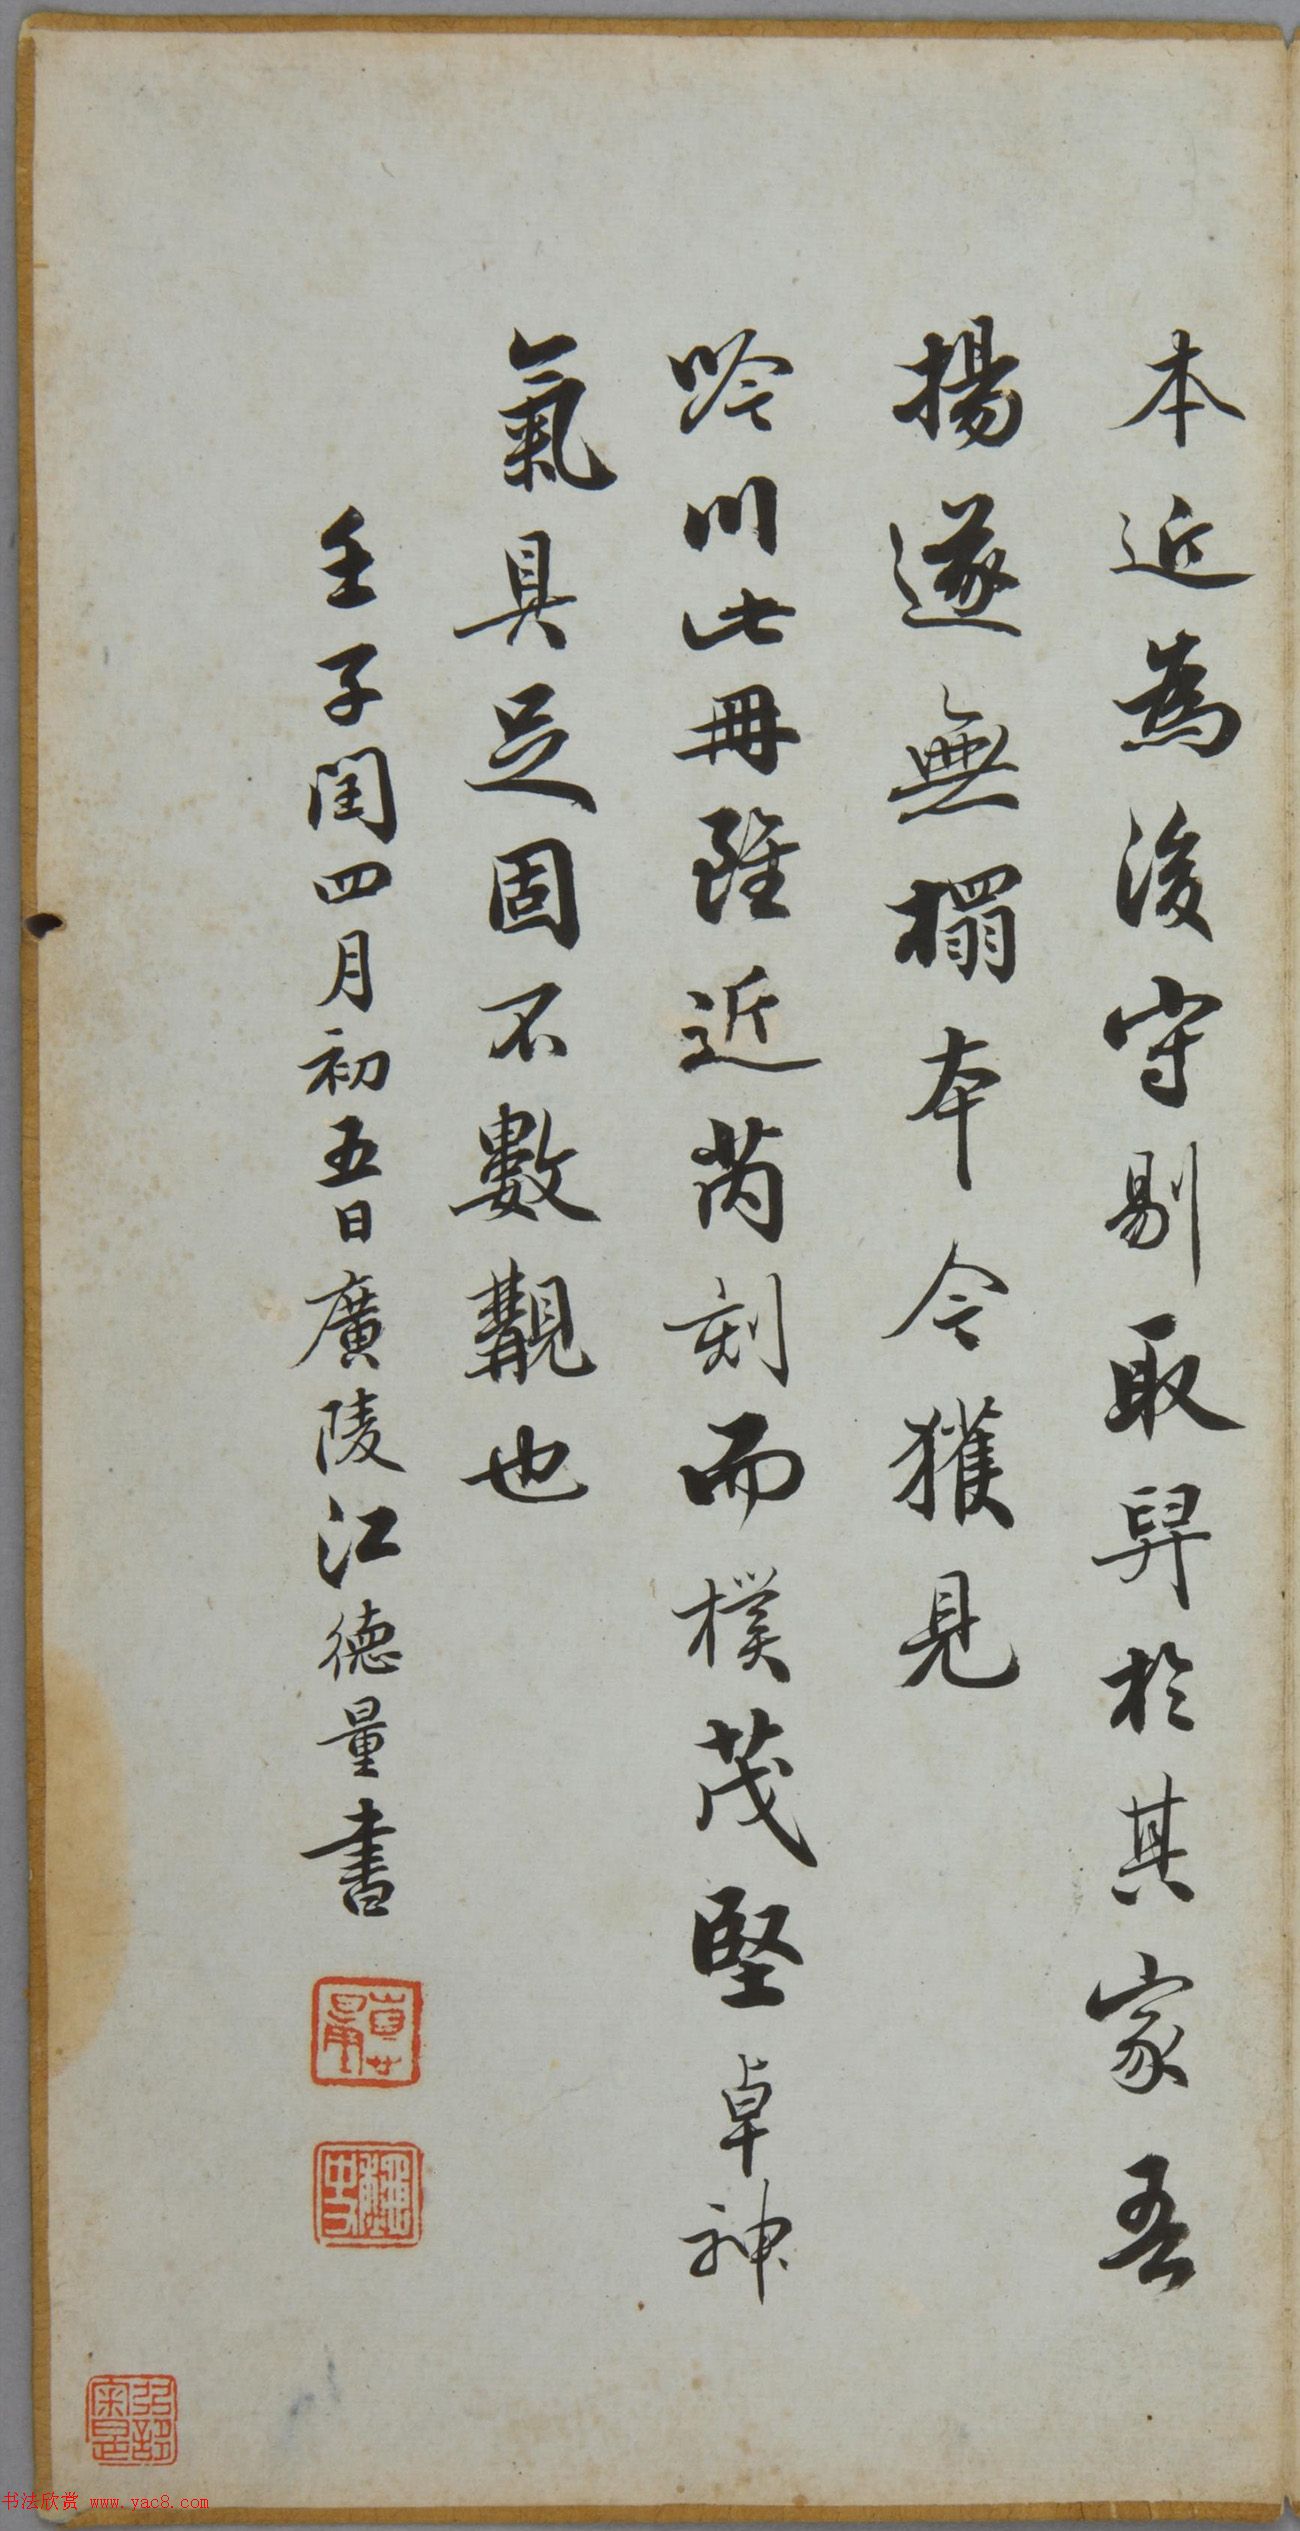 本近為後守剔取舁於其家吾
揚遂無搨本今獲見
吟川此冊雖近芮刻而樸茂堅卓神
氣具足固不數覯也
壬子閏四月初五日廣陵江德量書
书法欣赏 www.yac8.com